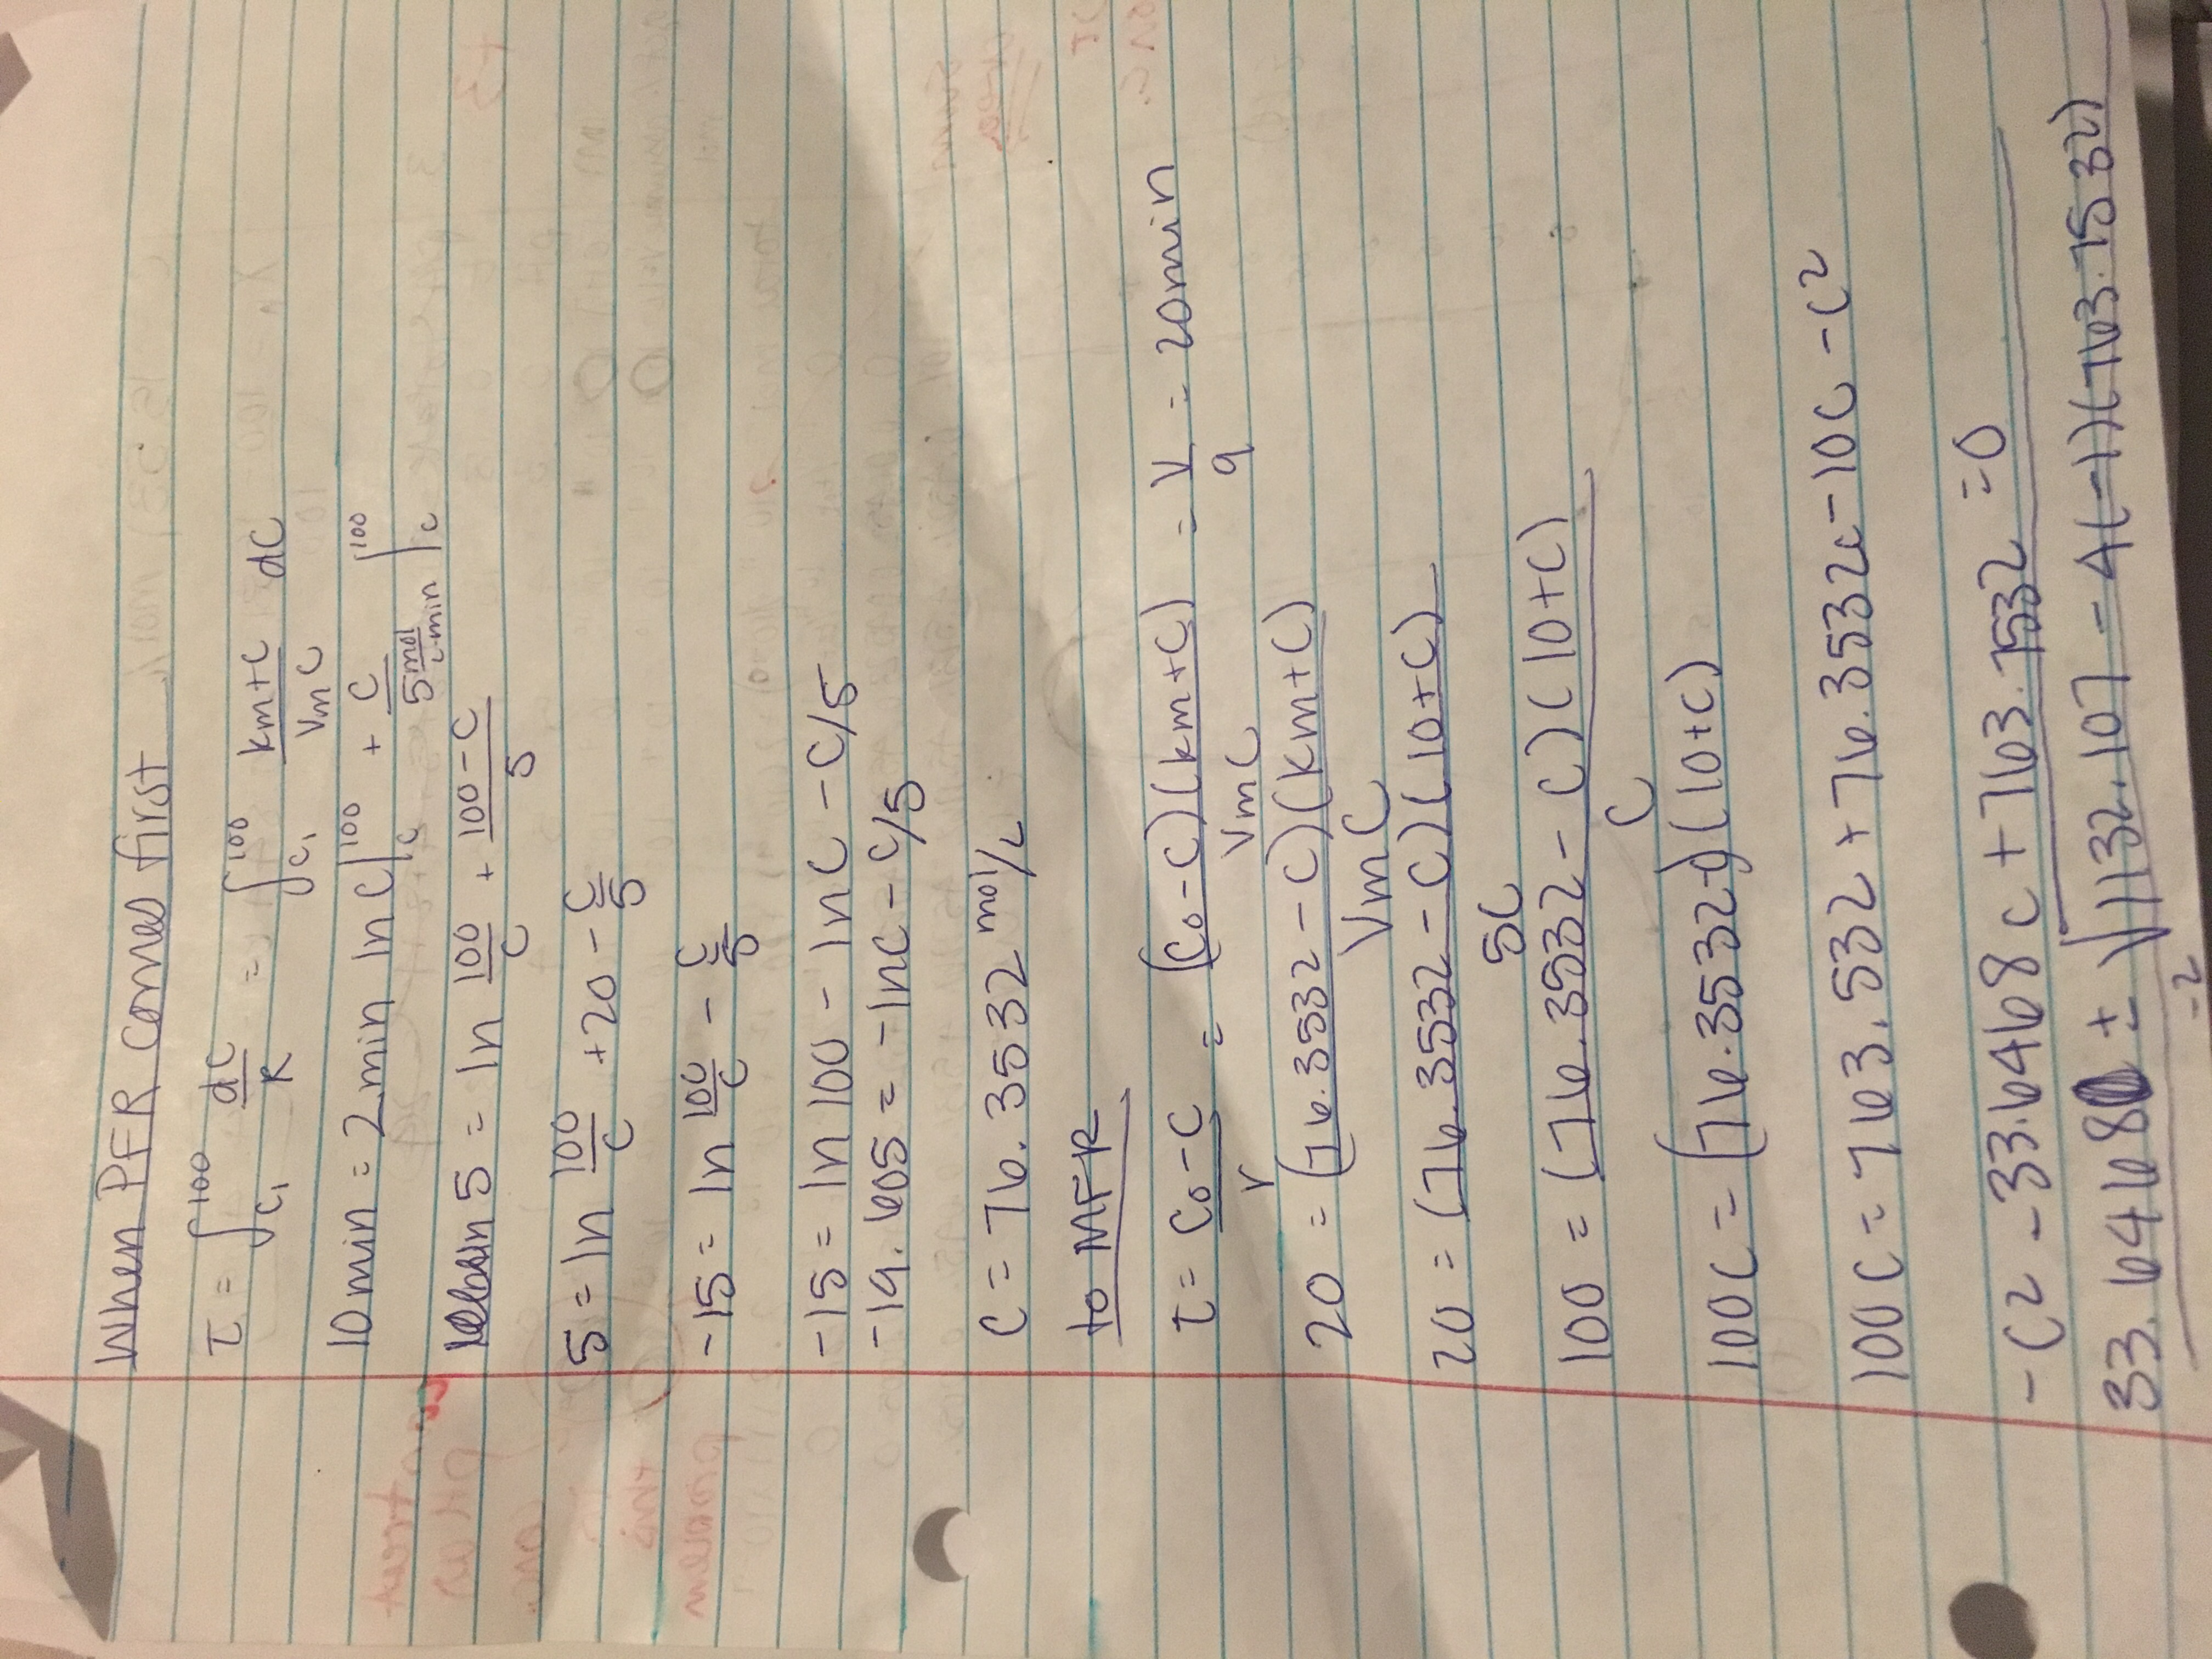 When PFR comes first
τ = ∫_{C₁}^{100} dC/R = ∫_{C₁}^{100} (km+C)/(VmC) dC
10min = 2min ln C|_{C}^{100} + C/(5 mol/L·min) |_{C}^{100}
5 = ln 100/C + (100-C)/5
5 = ln 100/C +20 - C/5
-15 = ln 100/C - C/5
-15 = ln 100 - ln C - C/5
-19.605 = -lnC - C/5
C = 76.3532 mol/L
to MFR
τ = (C₀-C)/r = (C₀-C)(km+C)/(VmC) = V/q = 20min
20 = (76.3532-C)(km+C)/(VmC)
20 = (76.3532-C)(10+C)/(5C)
100 = (76.3532-C)(10+C)/C
100C = (76.3532-C)(10+C)
100C = 763.532 + 76.3532c-10C -C²
-C² -33.6468c + 763.7532 =0
(33.6468 ± √(1132.107 - 4(-1)(763.7532)))/-2